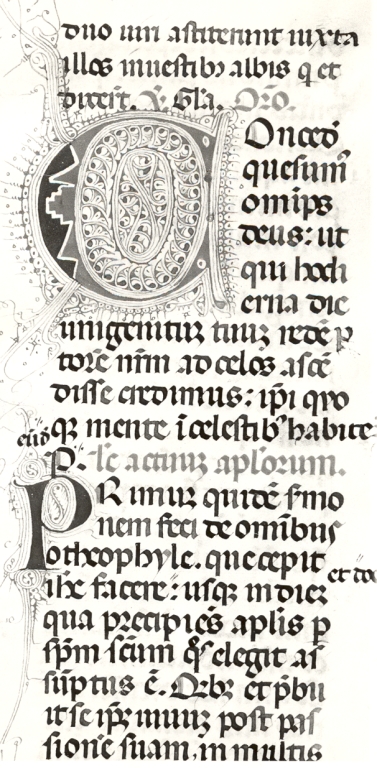 duo uiri astiterunt iuxta
illos in uestibȝ albis q̄ et
dixerr̄t. ℣. Gl̄a. Or̄o.
Conced̄
quesum̄
omīps
deus: ut
qui hodi
erna die
unigenituȝ tuuȝ redē p
torē nr̄m ad celos ascē
disse credimus: ip̄i quo
qȝ mente ī celestibȝ habite
Le actuuȝ aplorum.
PRimuȝ quidē ẜmo
nem feci de omībus
o theophyle. que cepit
ih̄c facere: usqȝ in dieȝ et do
qua precipiēs aplis p
sp̄m sc̄um q̄s elegit as
sūptus ē. Qibȝ et p̄bu
it se ip̄ȝ uiuuȝ post pas
sionē suam, in multis